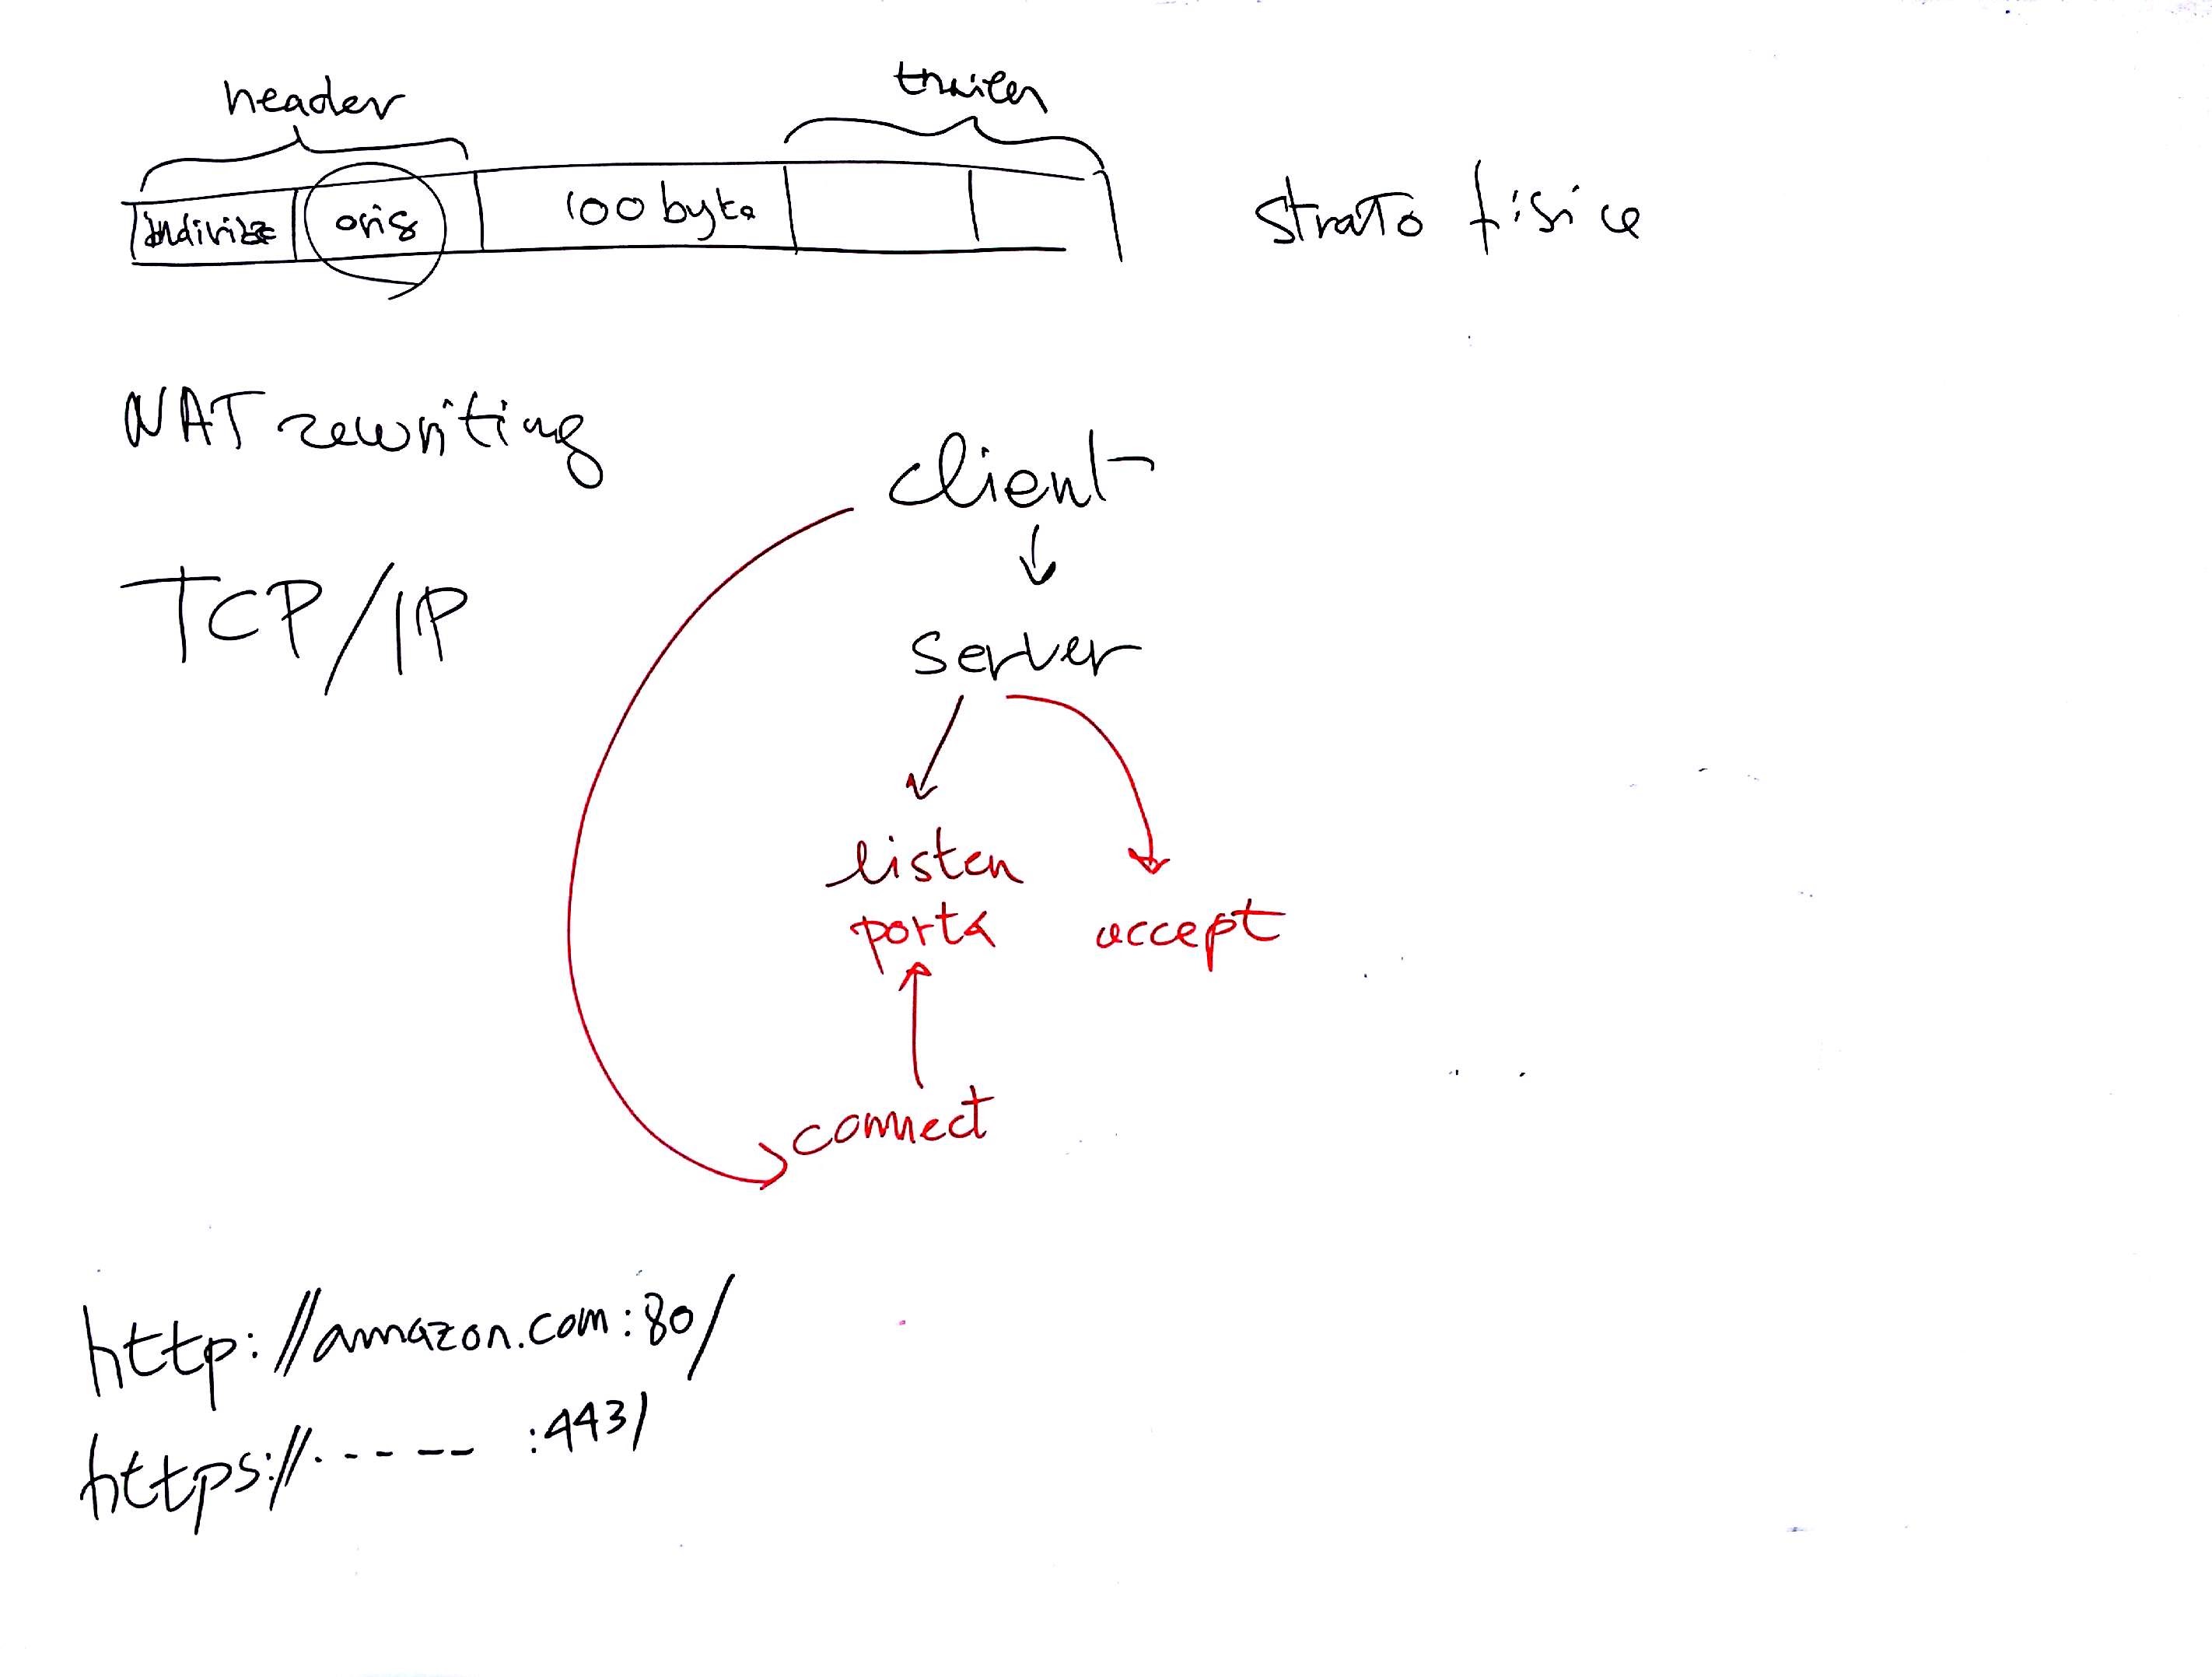 header
trailer
indirizz
orig
100 byte
strato fisico
NAT rewriting
client
TCP/IP
server
listen
porta
accept
connect
http://amazon.com:80/
https://.---- :443/